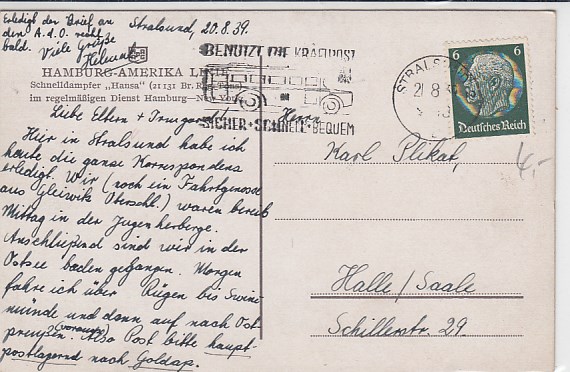 Erledigt der Brief an
den A.d.O. recht
bald. Viele Grüße
Helmut
Stralsund, 20.8.39.
HAMBURG-AMERIKA LINIE
Schnelldampfer „Hansa" (21 131 Br. Reg. Tons)
im regelmäßigen Dienst Hamburg—New York
BENUTZT DIE KRAFTPOST
SICHER · SCHNELL · BEQUEM
STRALSUND
21 8 3
6 6
Deutsches Reich
Liebe Eltern + Irmgard!
Hier in Stralsund habe ich
heute die ganze Korrespondenz
erledigt. Wir (noch ein Fahrtgenosse
aus Gleiwitz Oberschl.) waren bereits
Mittag in der Jugenherberge.
Anschließend sind wir in der
Ostsee baden gegangen. Morgen
fahre ich über Rügen bis Swine-
münde und dann auf nach Ost-
preußen. (voraus) Also Post bitte haupt-
postlagernd nach Goldap.
Herrn
Karl Plikat,
Halle/Saale
Schillerstr. 29.
4,-